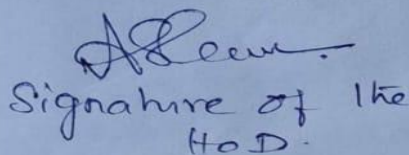 Signature of the
HoD.